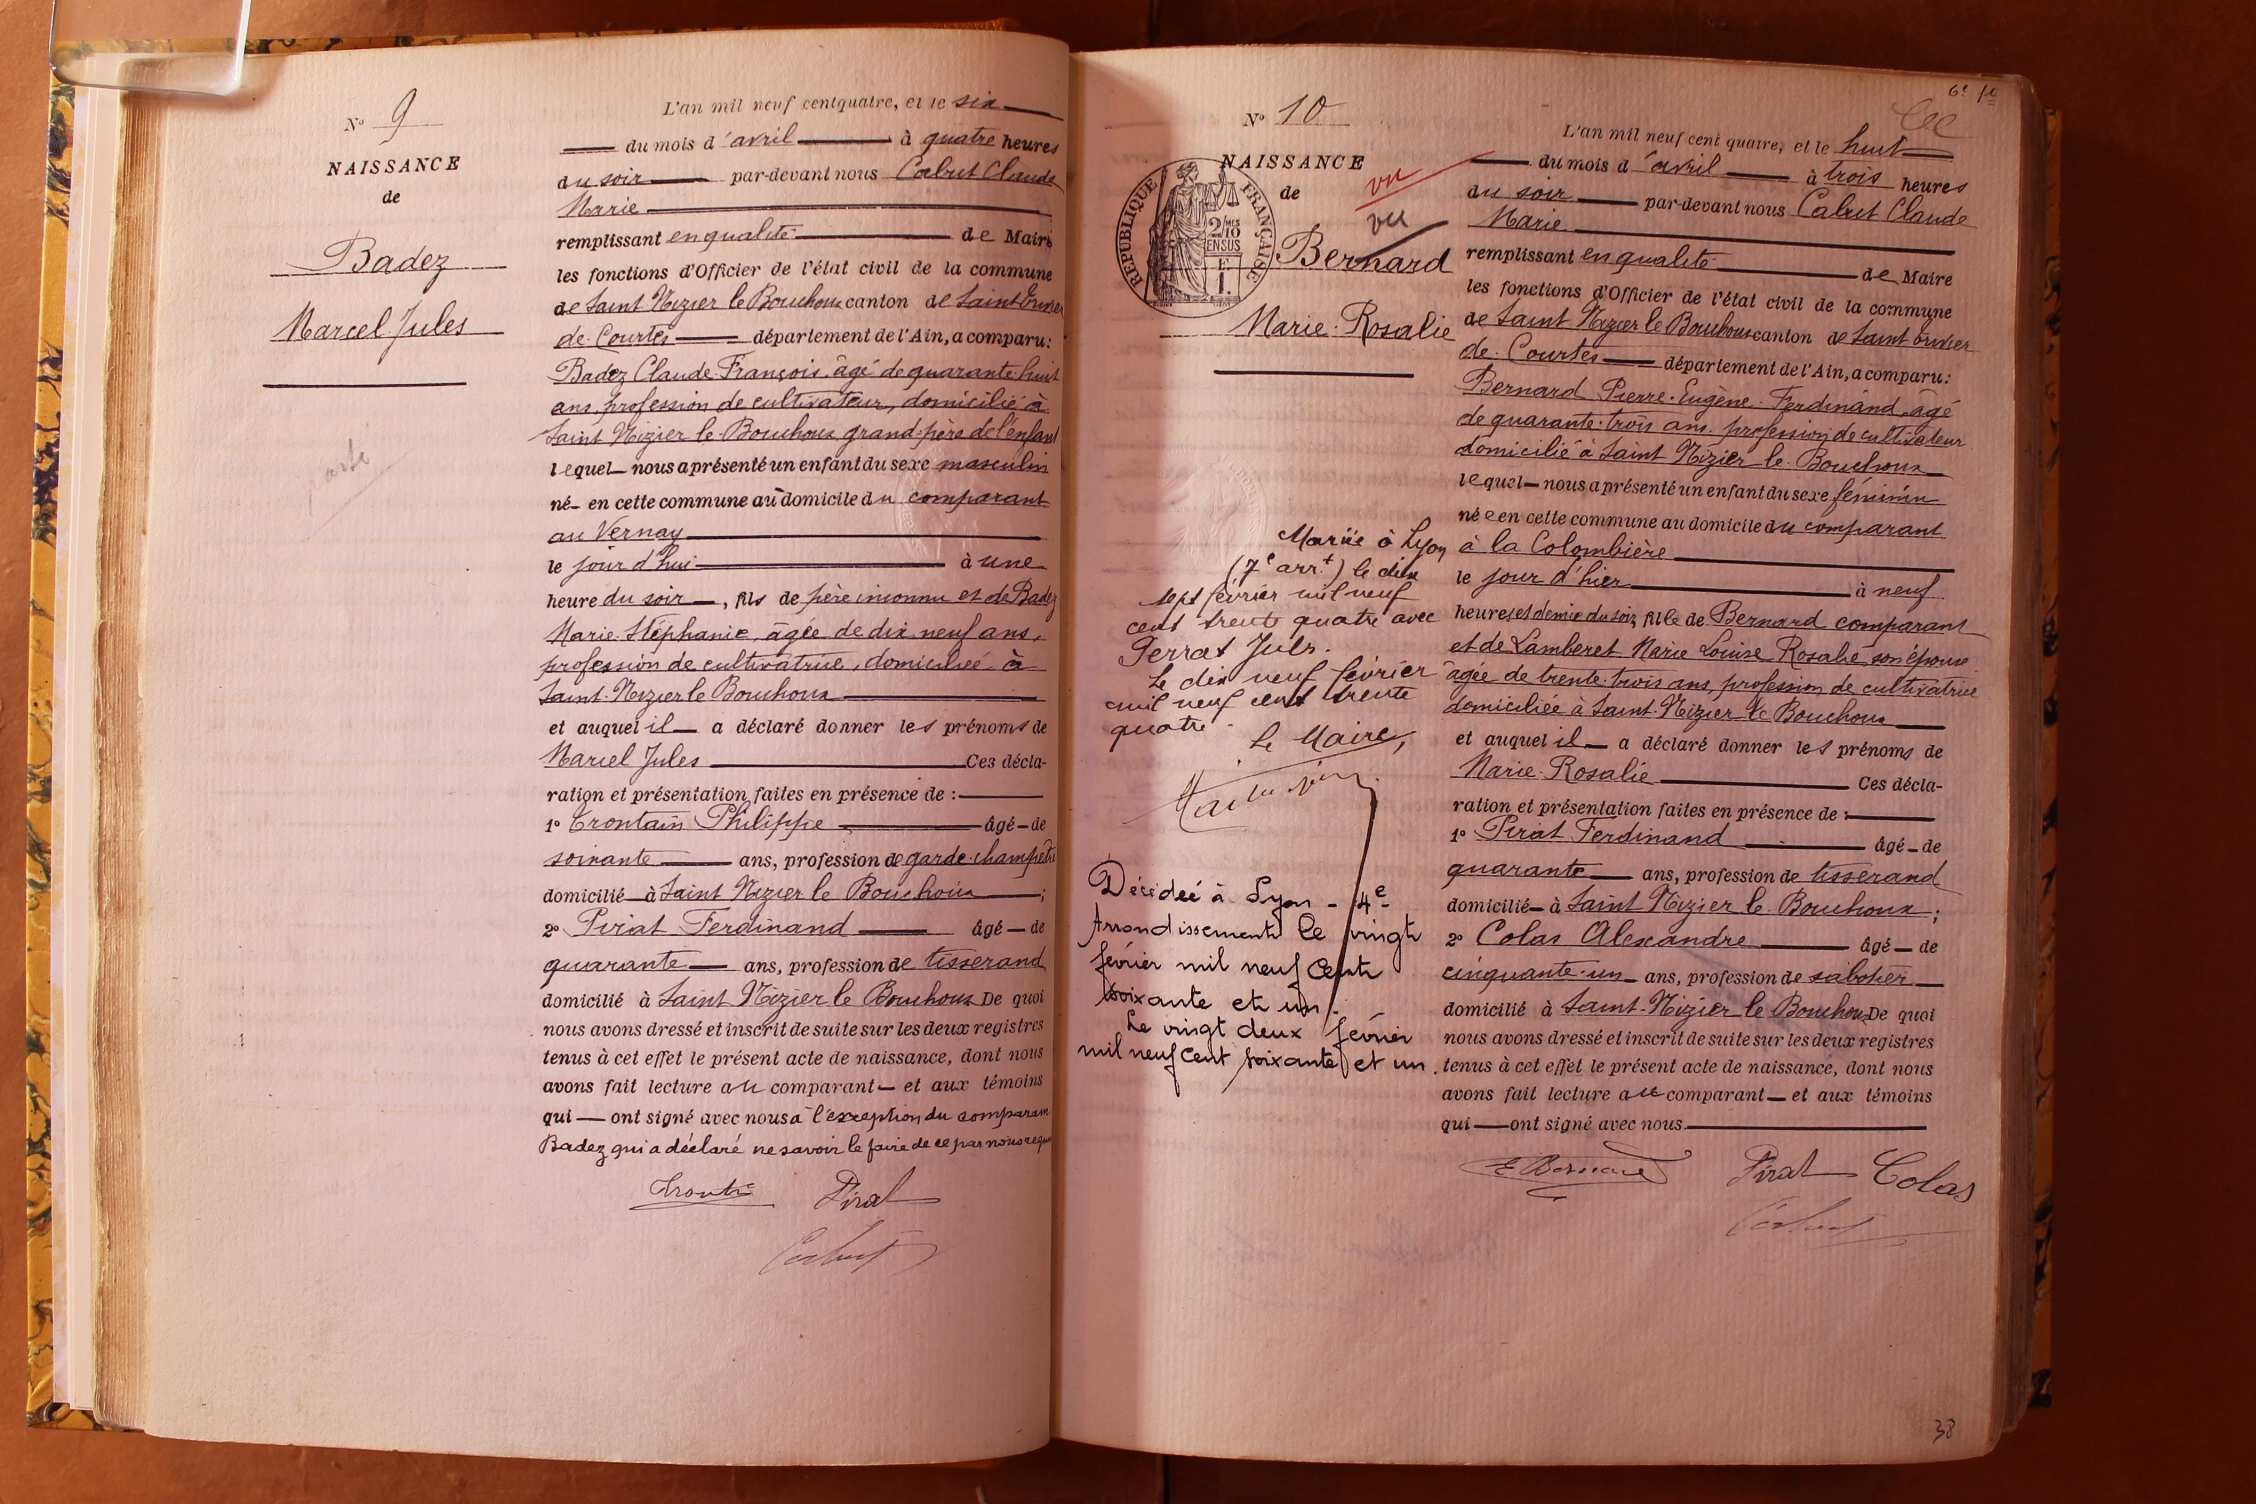 Nº 9
NAISSANCE
de
Badez
Marcel Jules
L'an mil neuf cent quatre, et le six
du mois d'avril à quatre heures
du soir par-devant nous Calrut Claude
Marie
remplissant en qualité de Maire
les fonctions d'Officier de l'état civil de la commune
de Saint Nizier le Bouchoux canton de Saint Trivier
de Courtes département de l'Ain, a comparu:
Badez Claude François, âgé de quarante huit
ans, profession de cultivateur, domicilié à
Saint Nizier le Bouchoux grand-père de l'enfant
lequel nous a présenté un enfant du sexe masculin
né en cette commune au domicile du comparant
au Vernay
le jour d'hui à une
heure du soir, fils de père inconnu et de Badez
Marie Stéphanie, âgée de dix neuf ans,
profession de cultivatrice, domiciliée à
Saint-Nizier le Bouchoux
et auquel il a déclaré donner les prénoms de
Marcel Jules Ces décla-
ration et présentation faites en présence de :
1º Trontain Philippe âgé de
soixante ans, profession de garde-champêtre
domicilié à Saint Nizier le Bouchoux ;
2º Pirat Ferdinand âgé de
quarante ans, profession de tisserand
domicilié à Saint Nizier le Bouchoux De quoi
nous avons dressé et inscrit de suite sur les deux registres
tenus à cet effet le présent acte de naissance, dont nous
avons fait lecture au comparant et aux témoins
qui ont signé avec nous à l'exception du comparant
Badez qui a déclaré ne savoir le faire de ce par nous requis
Pirat
6e fo
Nº 10
NAISSANCE
de
vu
vu
REPUBLIQUE FRANÇAISE
2/10
EN SUS
Bernard
Marie-Rosalie
Mariée à Lyon
(7e arrt) le dix
sept février mil neuf
cent trente quatre avec
Perrat Jules.
Le dix neuf février
mil neuf cent trente
quatre.
Le Maire,
Décédée à Lyon - 4e
Arrondissement le vingt
février mil neuf cent
soixante et un.
Le vingt deux février
mil neuf cent soixante et un.
L'an mil neuf cent quatre, et le huit
du mois d'avril à trois heures
du soir par-devant nous Calrut Claude
Marie
remplissant en qualité de Maire
les fonctions d'Officier de l'état civil de la commune
de Saint Nizier le Bouchoux canton de Saint Trivier
de Courtes département de l'Ain, a comparu:
Bernard Pierre-Eugène-Ferdinand, âgé
de quarante-trois ans, profession de cultivateur
domicilié à Saint Nizier le Bouchoux
lequel nous a présenté un enfant du sexe féminin
née en cette commune au domicile du comparant
à la Colombière
le jour d'hier à neuf
heures et demie du soir, fille de Bernard comparant
et de Lamberet Marie Louise Rosalie son épouse
âgée de trente-trois ans, profession de cultivatrice
domiciliée à Saint-Nizier le Bouchoux
et auquel il a déclaré donner les prénoms de
Marie-Rosalie Ces décla-
ration et présentation faites en présence de :
1º Pirat Ferdinand âgé de
quarante ans, profession de tisserand
domicilié à Saint Nizier le Bouchoux ;
2º Colas Alexandre âgé de
cinquante-un ans, profession de sabotier
domicilié à Saint-Nizier le Bouchoux De quoi
nous avons dressé et inscrit de suite sur les deux registres
tenus à cet effet le présent acte de naissance, dont nous
avons fait lecture au comparant et aux témoins
qui ont signé avec nous.
E Bernard Pirat Colas
38